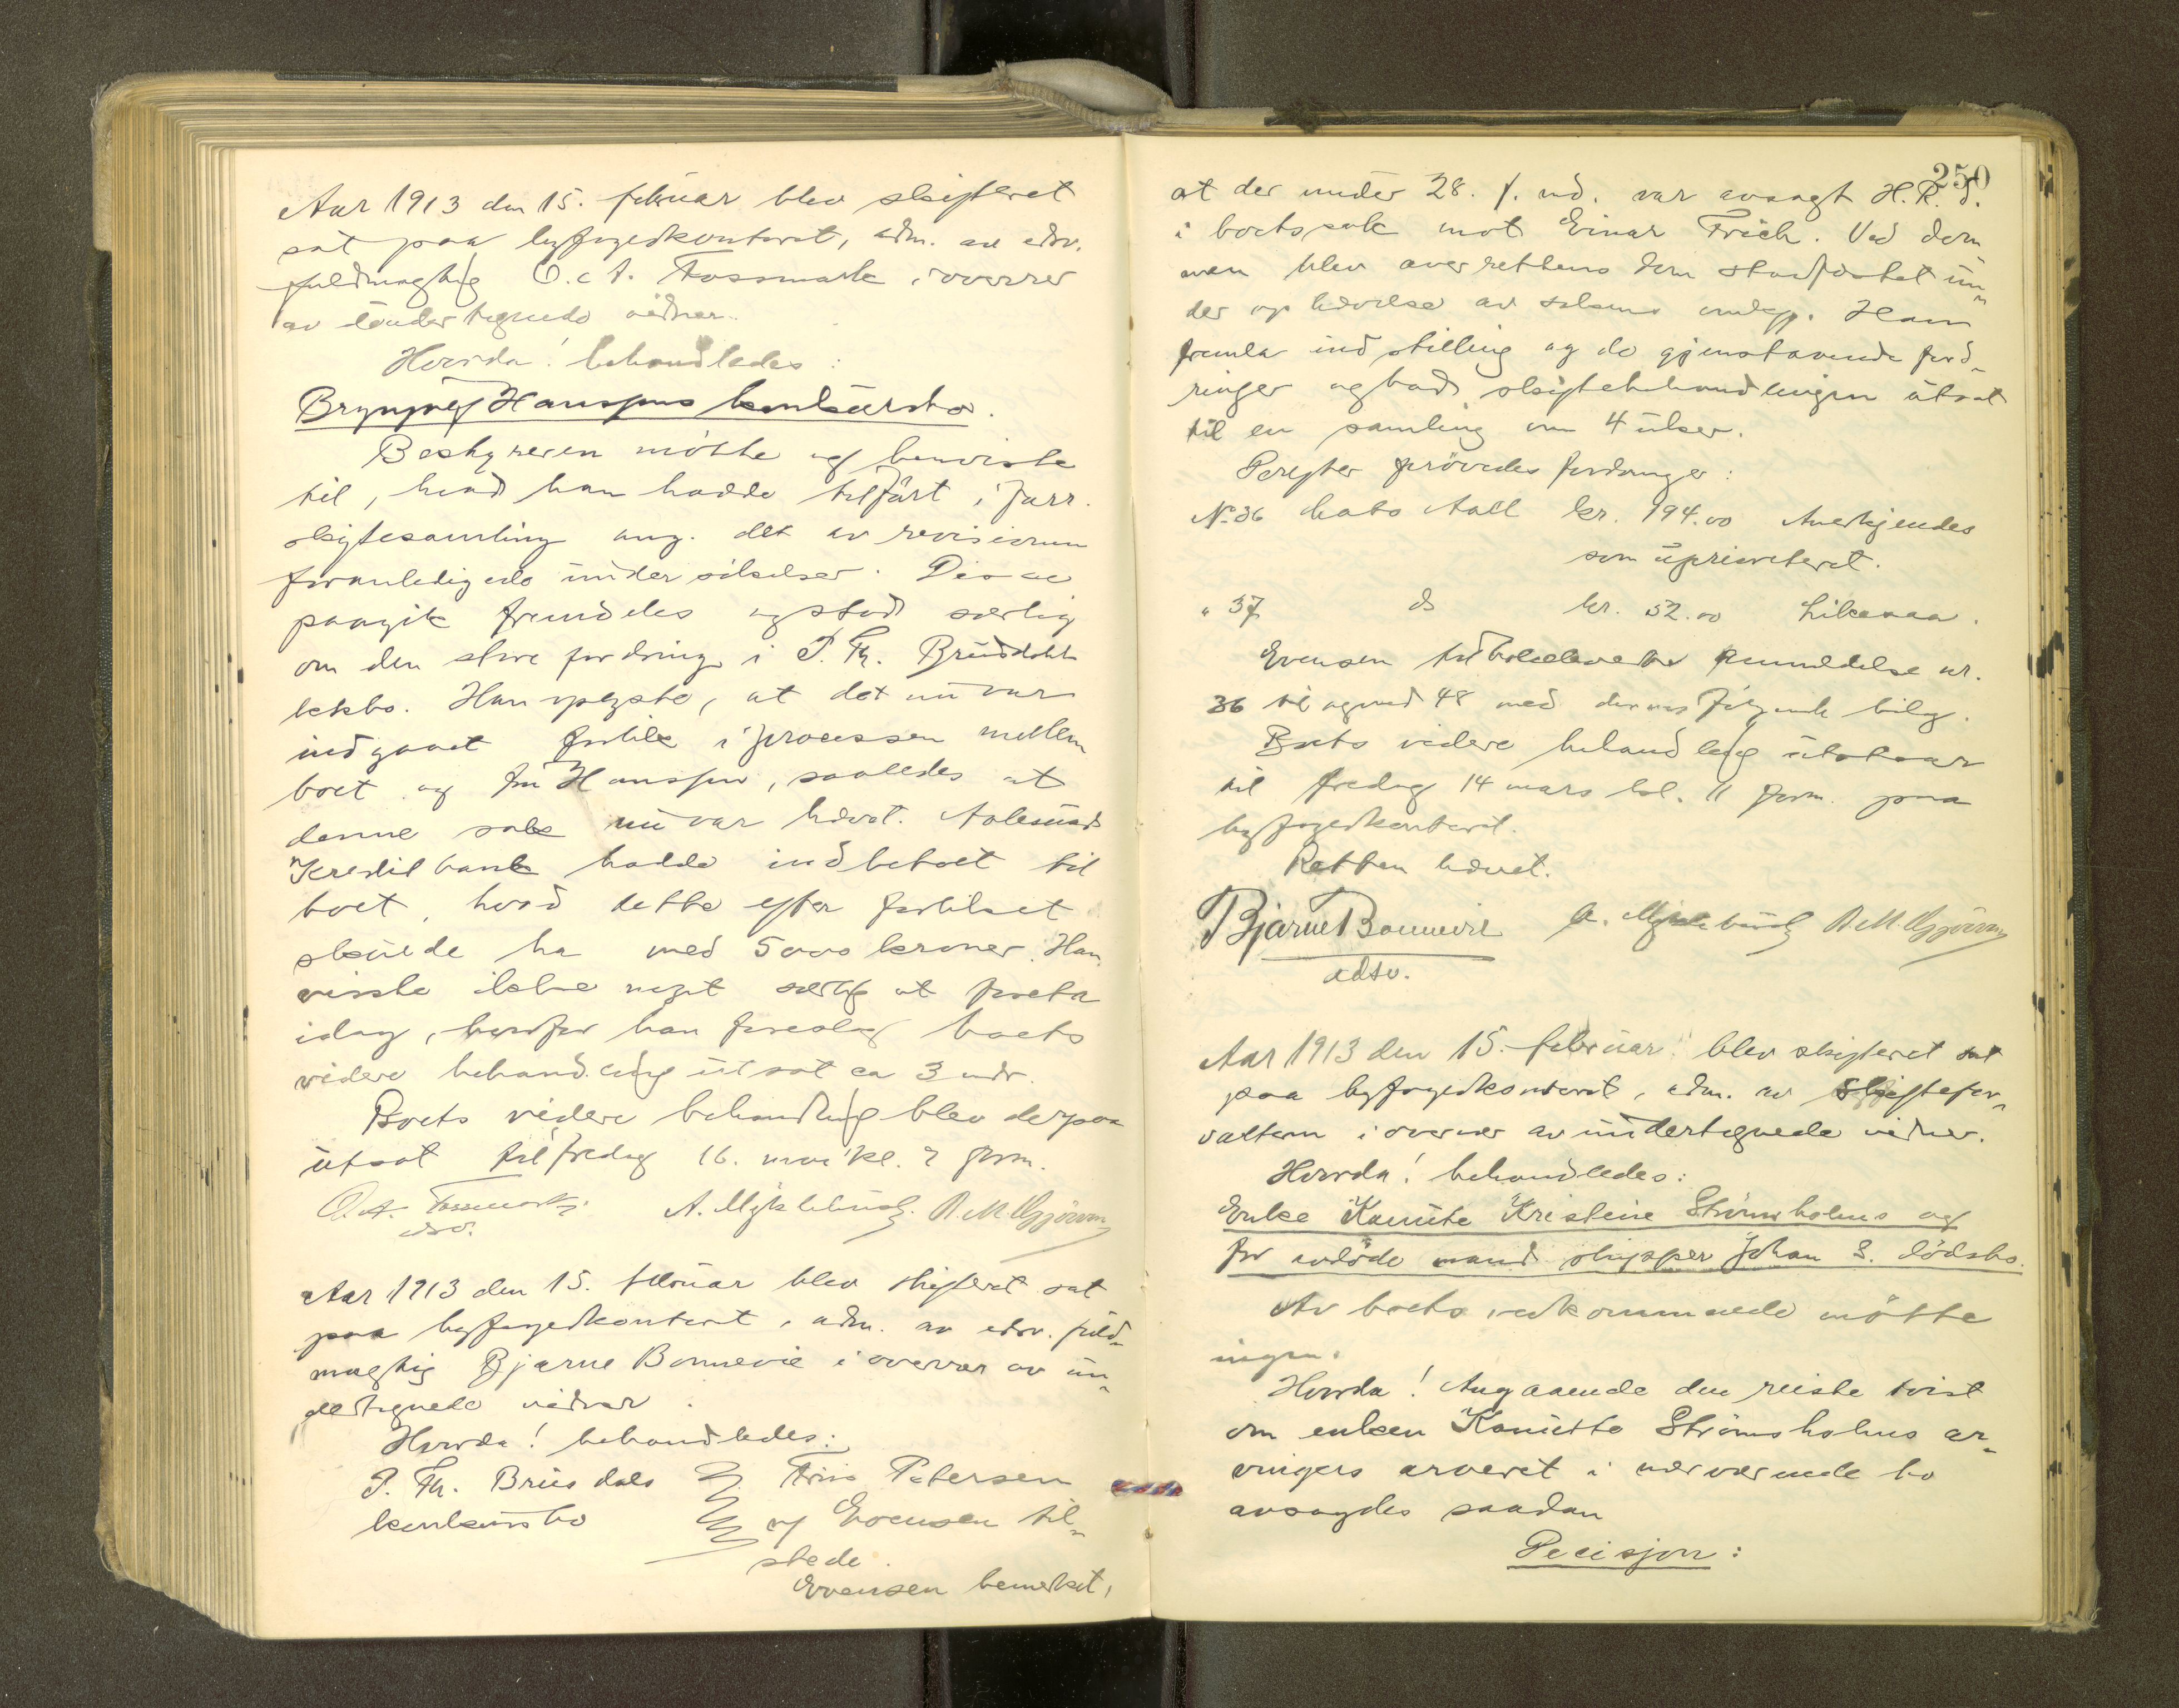 Aar 1913 den 15. februar blev skifteret
sat paa byfogedkontoret, adm. av edsv.
fuldmægtig O. A. Fossmark i overvær
av undertegnede vidner.
Hvorda! behandledes:
Brynjulf Hanssens konkursbo.
Bestyreren møtte og henviste
til, hvad han hadde tilført i forr.
skiftesamling ang. det av revisionen
foranledigede undersøkelser. Disse
paagik fremdeles og stod særlig
om den store fordring i P. Th. Brusdals
kkbo. Han oplyste, at det nu var
indgaaet forlik i processen mellem
boet og fru Hanssen, saaledes at
denne sak nu var hævet. Aalesunds
Kreditbank hadde indbetalt til
boet, hvad dette efter forliket
skulde ha med 5000 kroner. Han
visste ikke noget særlig at foreta
idag, hvorfor han foreslog boets
videre behandling utsat ca 3 mdr.
Boets videre behandling blev derpaa
utsat til fredag 16. mai kl. 9 form.
O. A. Fossmark. A. Myklebust. R. M. Gjørven
edsv.
Aar 1913 den 15. februar blev skifteret sat
paa byfogedkontoret, adm. av edsv. fuld-
mægtig Bjarne Bonnevie i overvær av un-
dertegnede vidner.
Hvorda! behandledes:
P. Th. Brusdals Friis Petersen
konkursbo og Evensen til-
stede.
Evensen bemerket,
250
at der under 28. f. md. var avsagt H.R.d.
i boets sak mot Einar Frich. Ved dom-
men blev overrettens dom stadfæstet un-
der ophævelse av sakens omkg. Han
fremla indstilling og de gjenstaaende ford-
ringer og bad skiftebehandlingen utsat
til en samling om 4 uker.
Derefter prøvedes fordringer:
No 36 Mats Aall kr. 194.00 Anerkjendes
som uprioritert.
" 37 do kr. 52.00 Likesaa.
Evensen tilbakeleverte anmeldelse nr.
36 til og med 48 med dermed følgende bilag.
Boets videre behandling utstaar
til fredag 14 mars kl. 11 form. paa
byfogedkontoret.
Retten hævet.
Bjarne Bonnevie A. Myklebust R. M. Gjørven
edsv.
Aar 1913 den 15. februar blev skifteret sat
paa byfogedkontoret, adm. av skiftefor-
valteren i overvær av undertegnede vidner.
Hvorda! behandledes:
Enke Kanutte Kristine Strømsholms og
før avdøde mand skipper Johan S. dødsbo.
Av boets vedkommende møtte
ingen.
Hvorda! Angaaende den reiste tvist
om enken Kanutte Strømsholms ar-
vingers arveret i nærværende bo
avsagdes saadan
Decisjon: